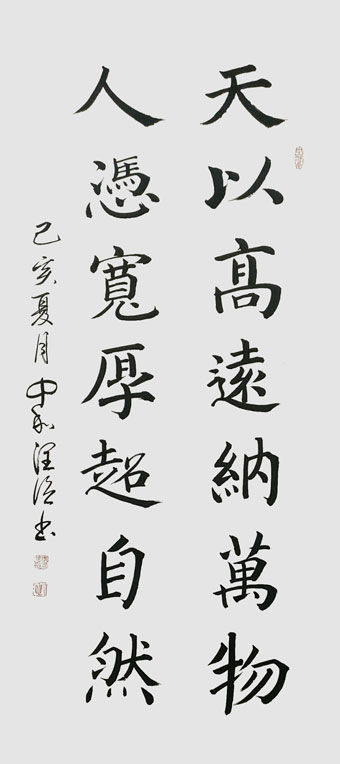 天以高遠納萬物
人憑寬厚超自然
己亥夏月中和